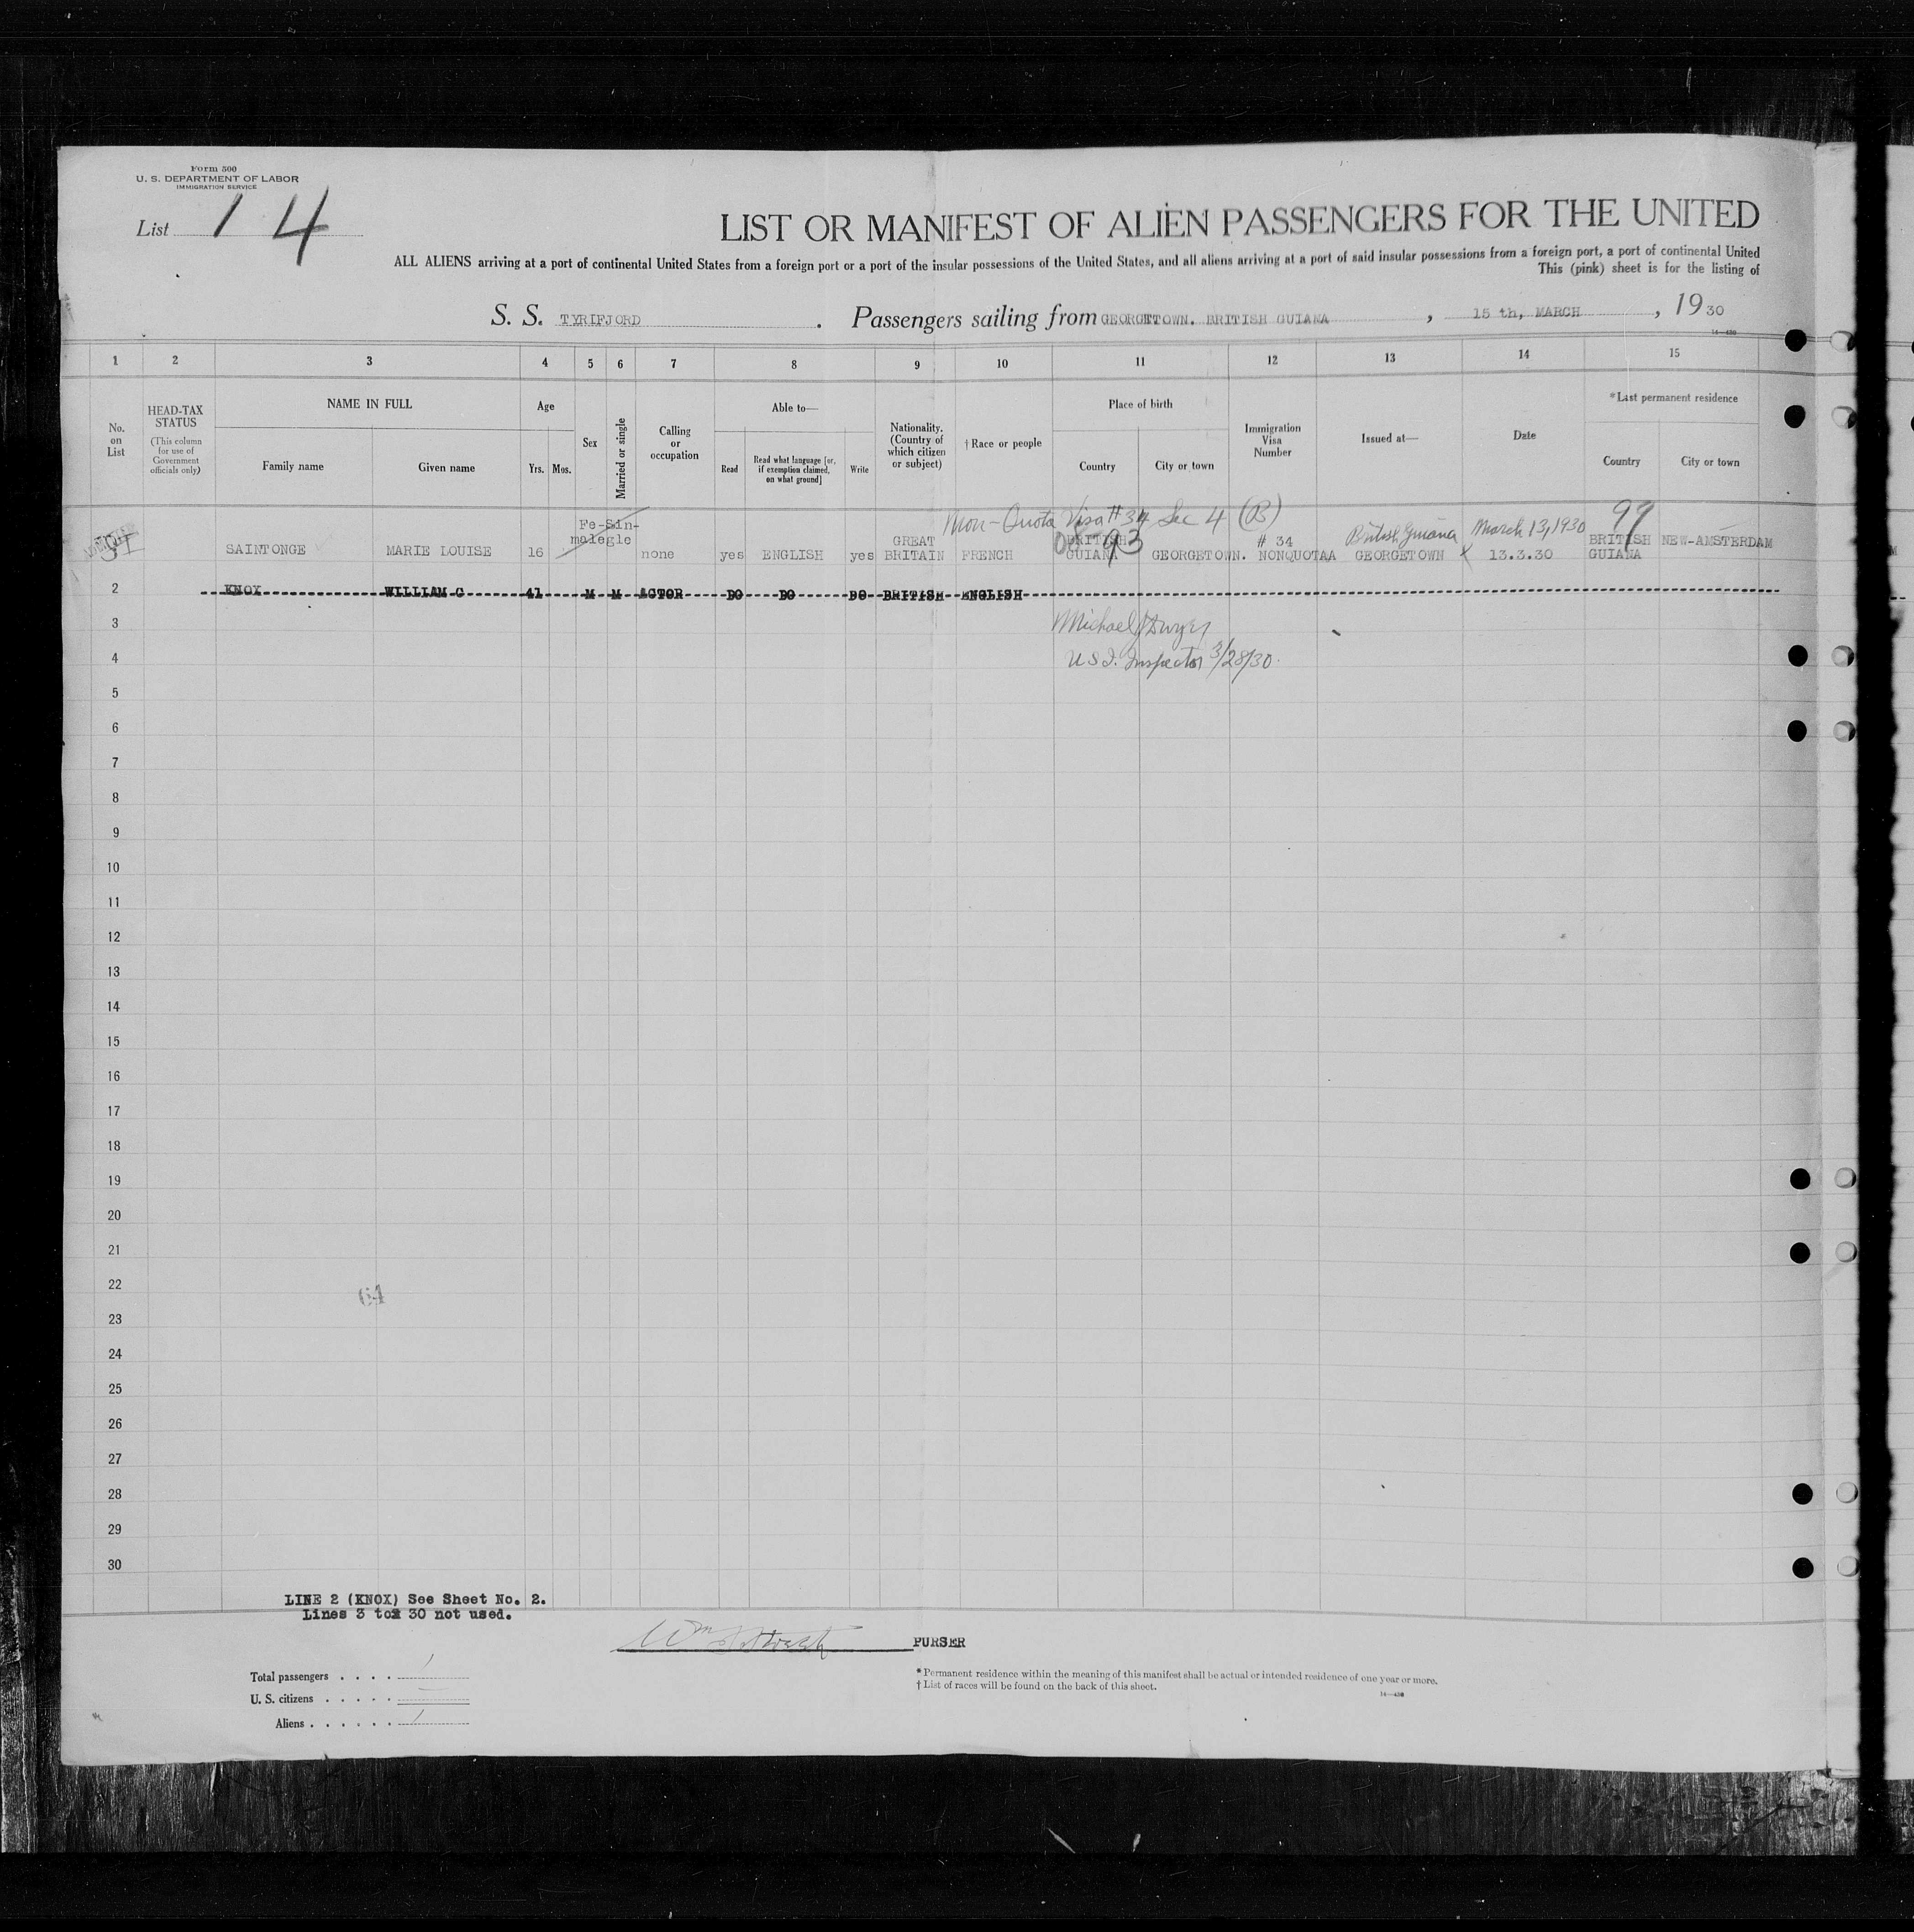 Form 500
U. S. DEPARTMENT OF LABOR
IMMIGRATION SERVICE
List 1 4
LIST OR MANIFEST OF ALIEN PASSENGERS FOR THE UNITED
ALL ALIENS arriving at a port of continental United States from a foreign port or a port of the insular possessions of the United States, and all aliens arriving at a port of said insular possessions from a foreign port, a port of continental United
This (pink) sheet is for the listing of
S. S. TYRIFJORD . Passengers sailing from GEORGETOWN. BRITISH GUIANA , 15 th, MARCH , 19 30
14—430
1 2 3 4 5 6 7 8 9 10 11 12 13 14 15
No. on List
HEAD-TAX STATUS
(This column for use of Government officials only)
NAME IN FULL
Family name Given name
Age
Yrs. Mos.
Sex
Married or single
Calling or occupation
Able to—
Read
Read what language [or, if exemption claimed, on what ground]
Write
Nationality. (Country of which citizen or subject)
† Race or people
Place of birth
Country City or town
Immigration Visa Number
Issued at—
Date
* Last permanent residence
Country City or town
Non-Quota Visa # 34 Sec 4 (B) 99
SAINTONGE MARIE LOUISE 16 Fe-male Sin-gle none yes ENGLISH yes GREAT BRITAIN FRENCH BRITISH GUIANA 93 GEORGETOWN. # 34 NONQUOTAA British Guiana GEORGETOWN March 13, 1930 13.3.30 BRITISH GUIANA NEW-AMSTERDAM
2 KNOX WILLIAM C 41 M M ACTOR DO DO DO BRITISH ENGLISH
3 Michael J Dwyer
4 U S I. Inspector 3/28/30.
5
6
7
8
9
10
11
12
13
14
15
16
17
18
19
20
21
22
64
23
24
25
26
27
28
29
30
LINE 2 (KNOX) See Sheet No. 2.
Lines 3 to 30 not used.
PURSER
Total passengers . . . . 1
U. S. citizens . . . . . —
Aliens . . . . . . 1
* Permanent residence within the meaning of this manifest shall be actual or intended residence of one year or more.
† List of races will be found on the back of this sheet.
14—430